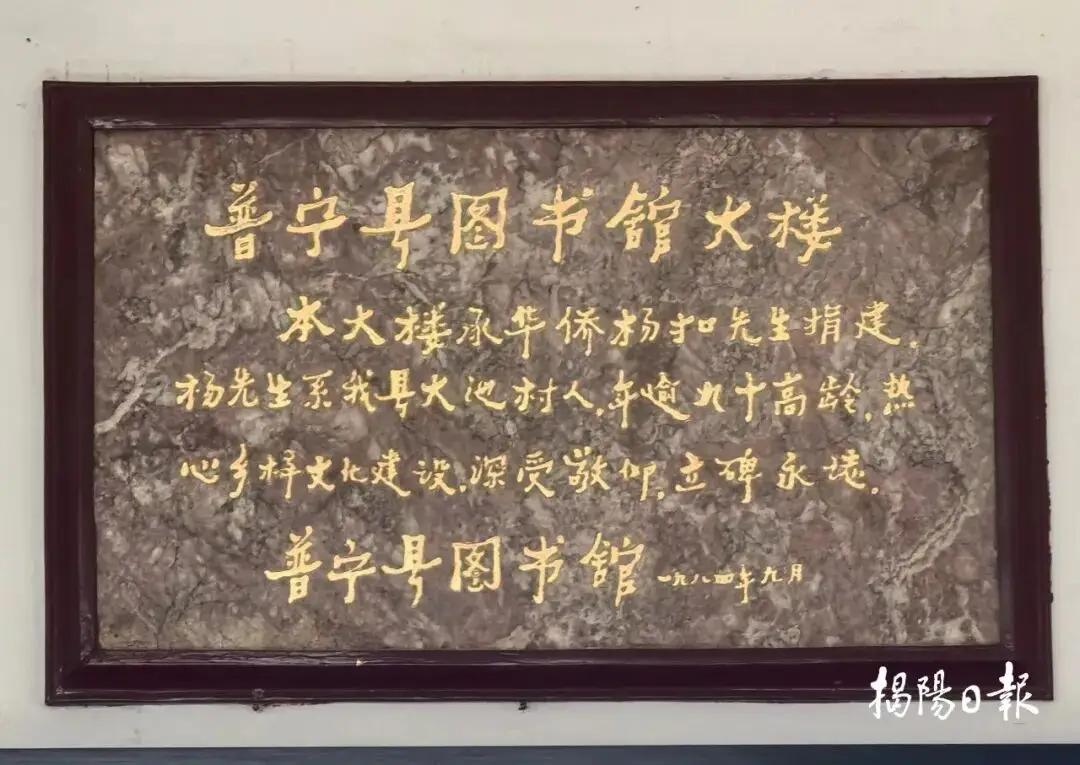 普宁县图书馆大楼
本大楼承华侨杨和先生捐建。
杨先生系我县大池村人,年逾九十高龄,热
心乡梓文化建设,深受敬仰,立碑永志。
普宁县图书馆 一九八四年九月
揭陽日報